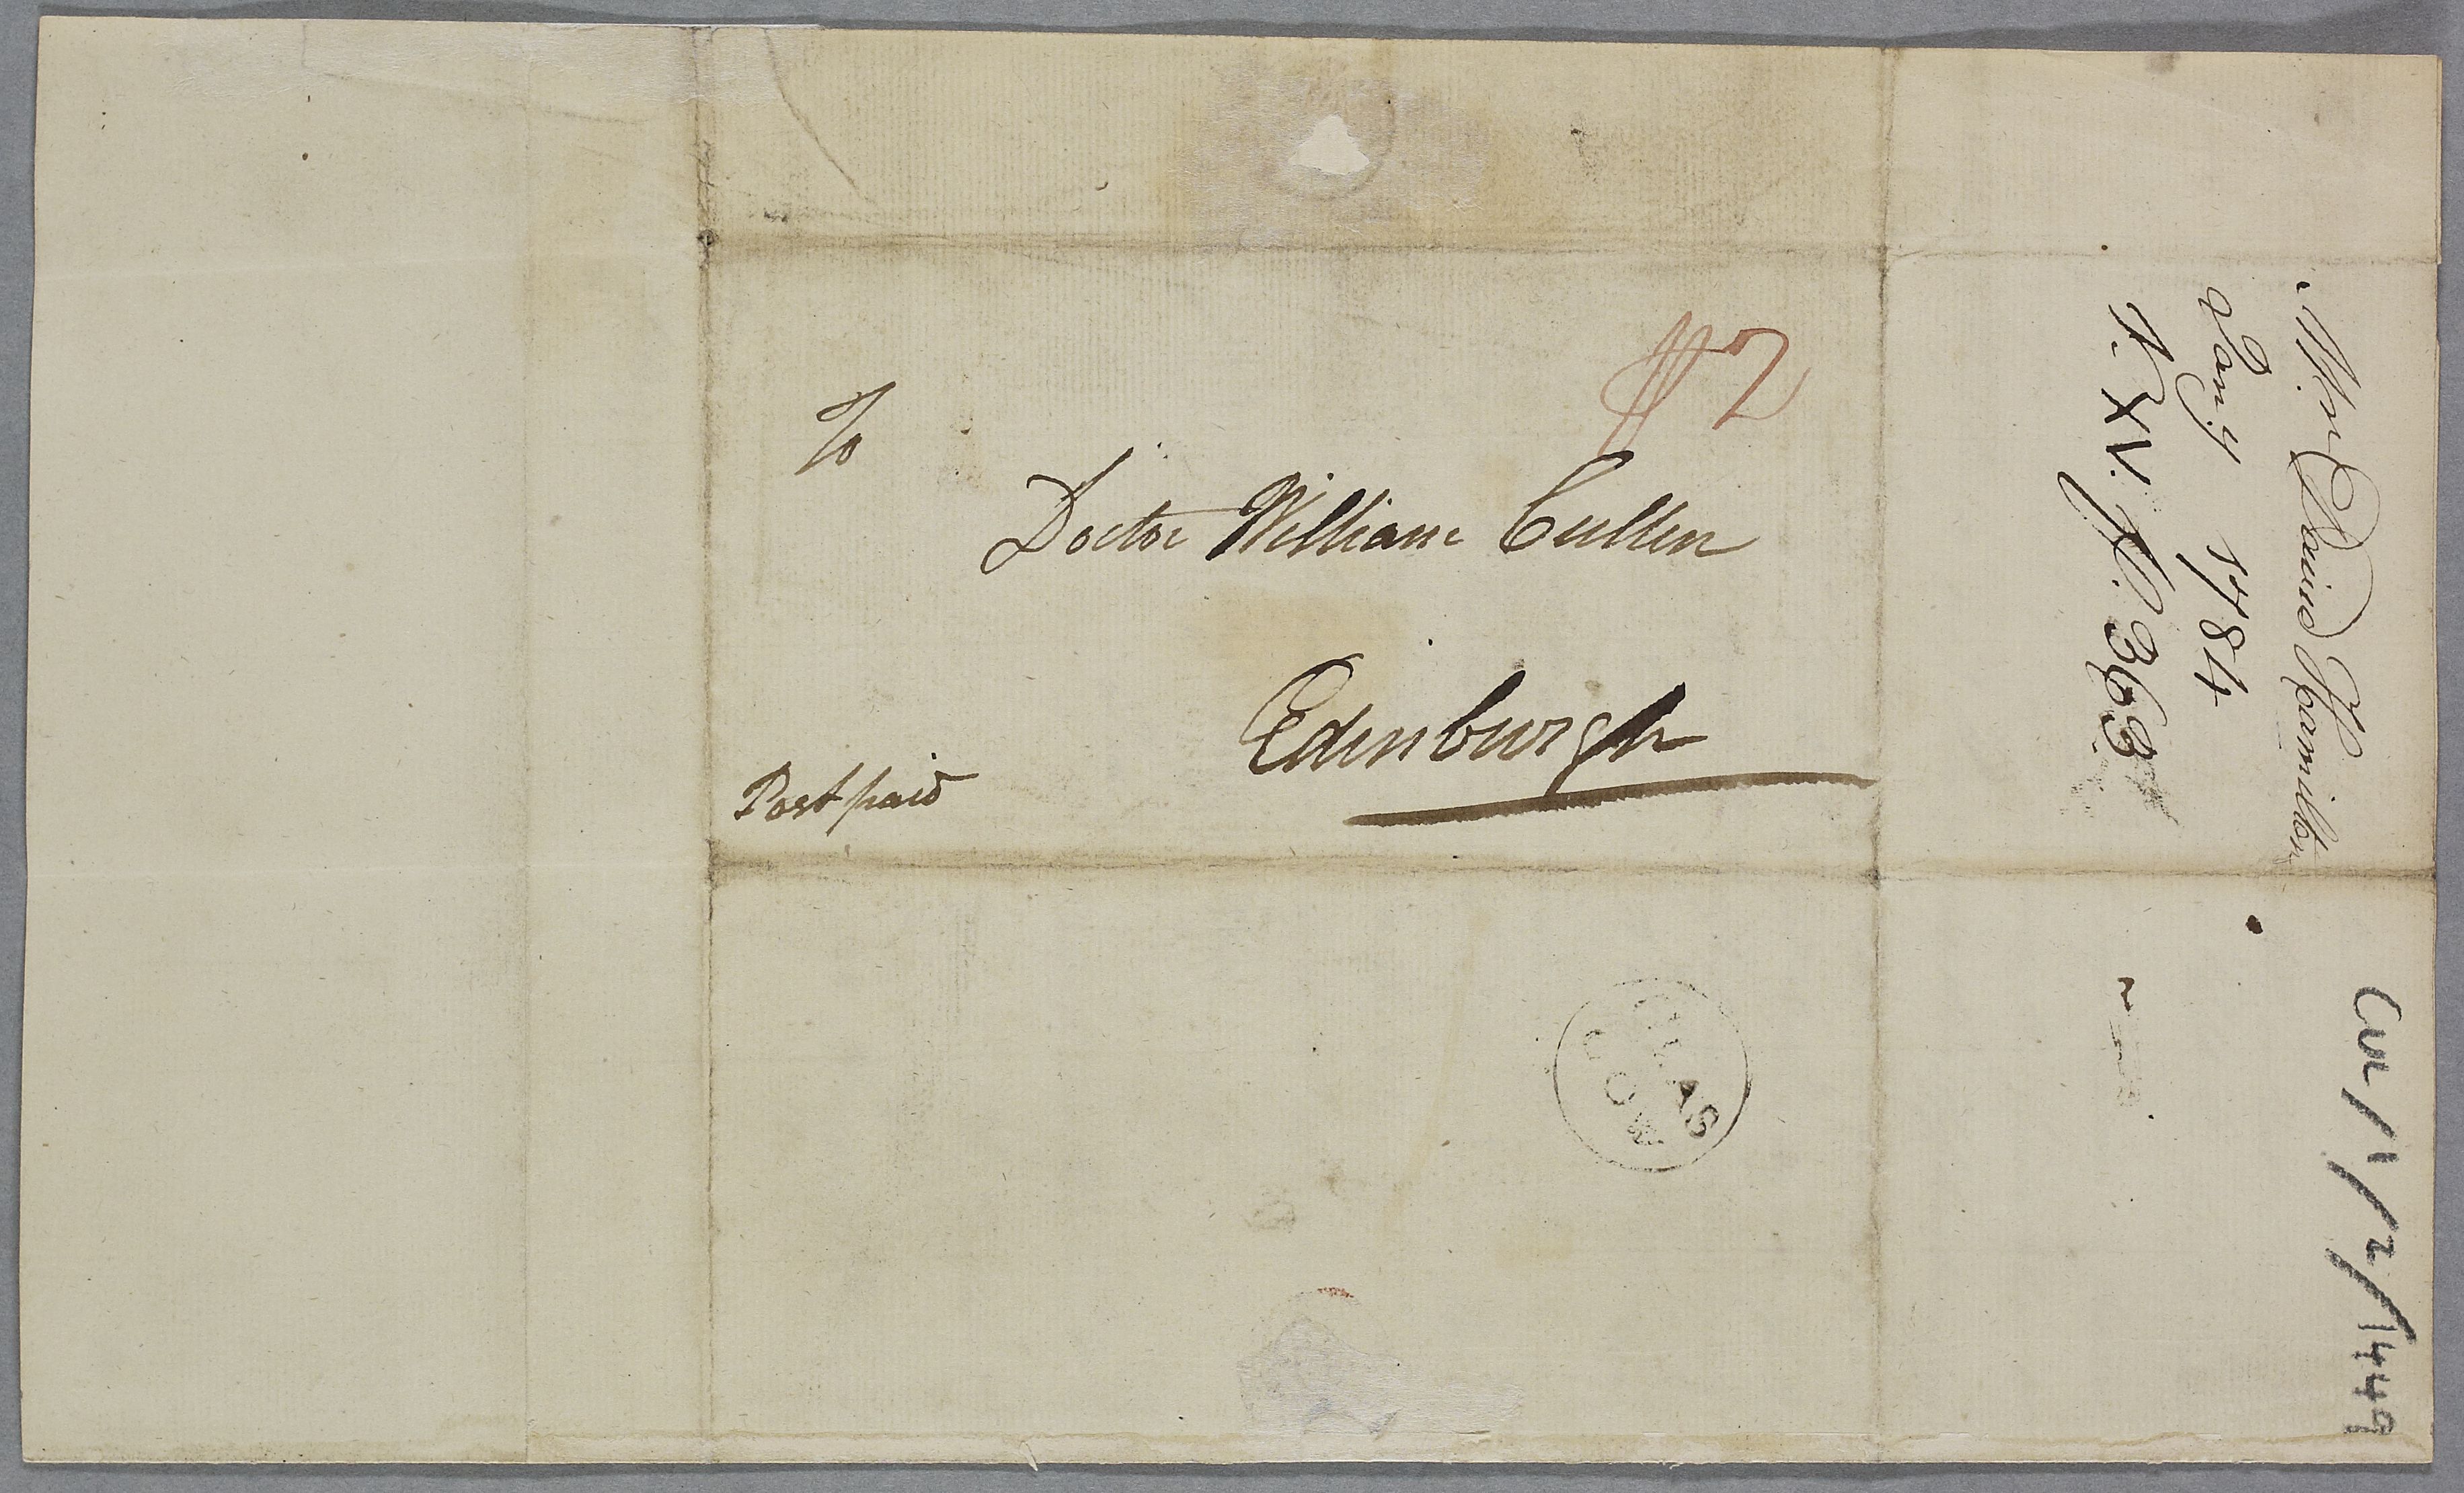 To
Doctor William Cullen
Edinburgh
Post paid
GLAS
GOW
Mr David Hamilton
Jany 1784
V. XV. p. 363
CUL/1/2/1449